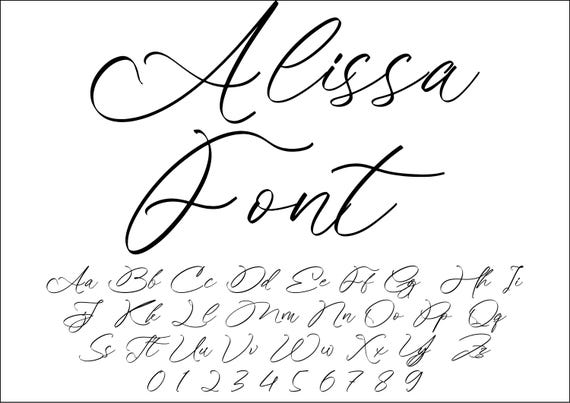 Alissa
Font
Aa Bb Cc Dd Ee Ff Gg Hh Ii
Jj Kk Ll Mm Nn Oo Pp Qq
Ss Tt Uu Vv Ww Xx Yy Zz
0 1 2 3 4 5 6 7 8 9